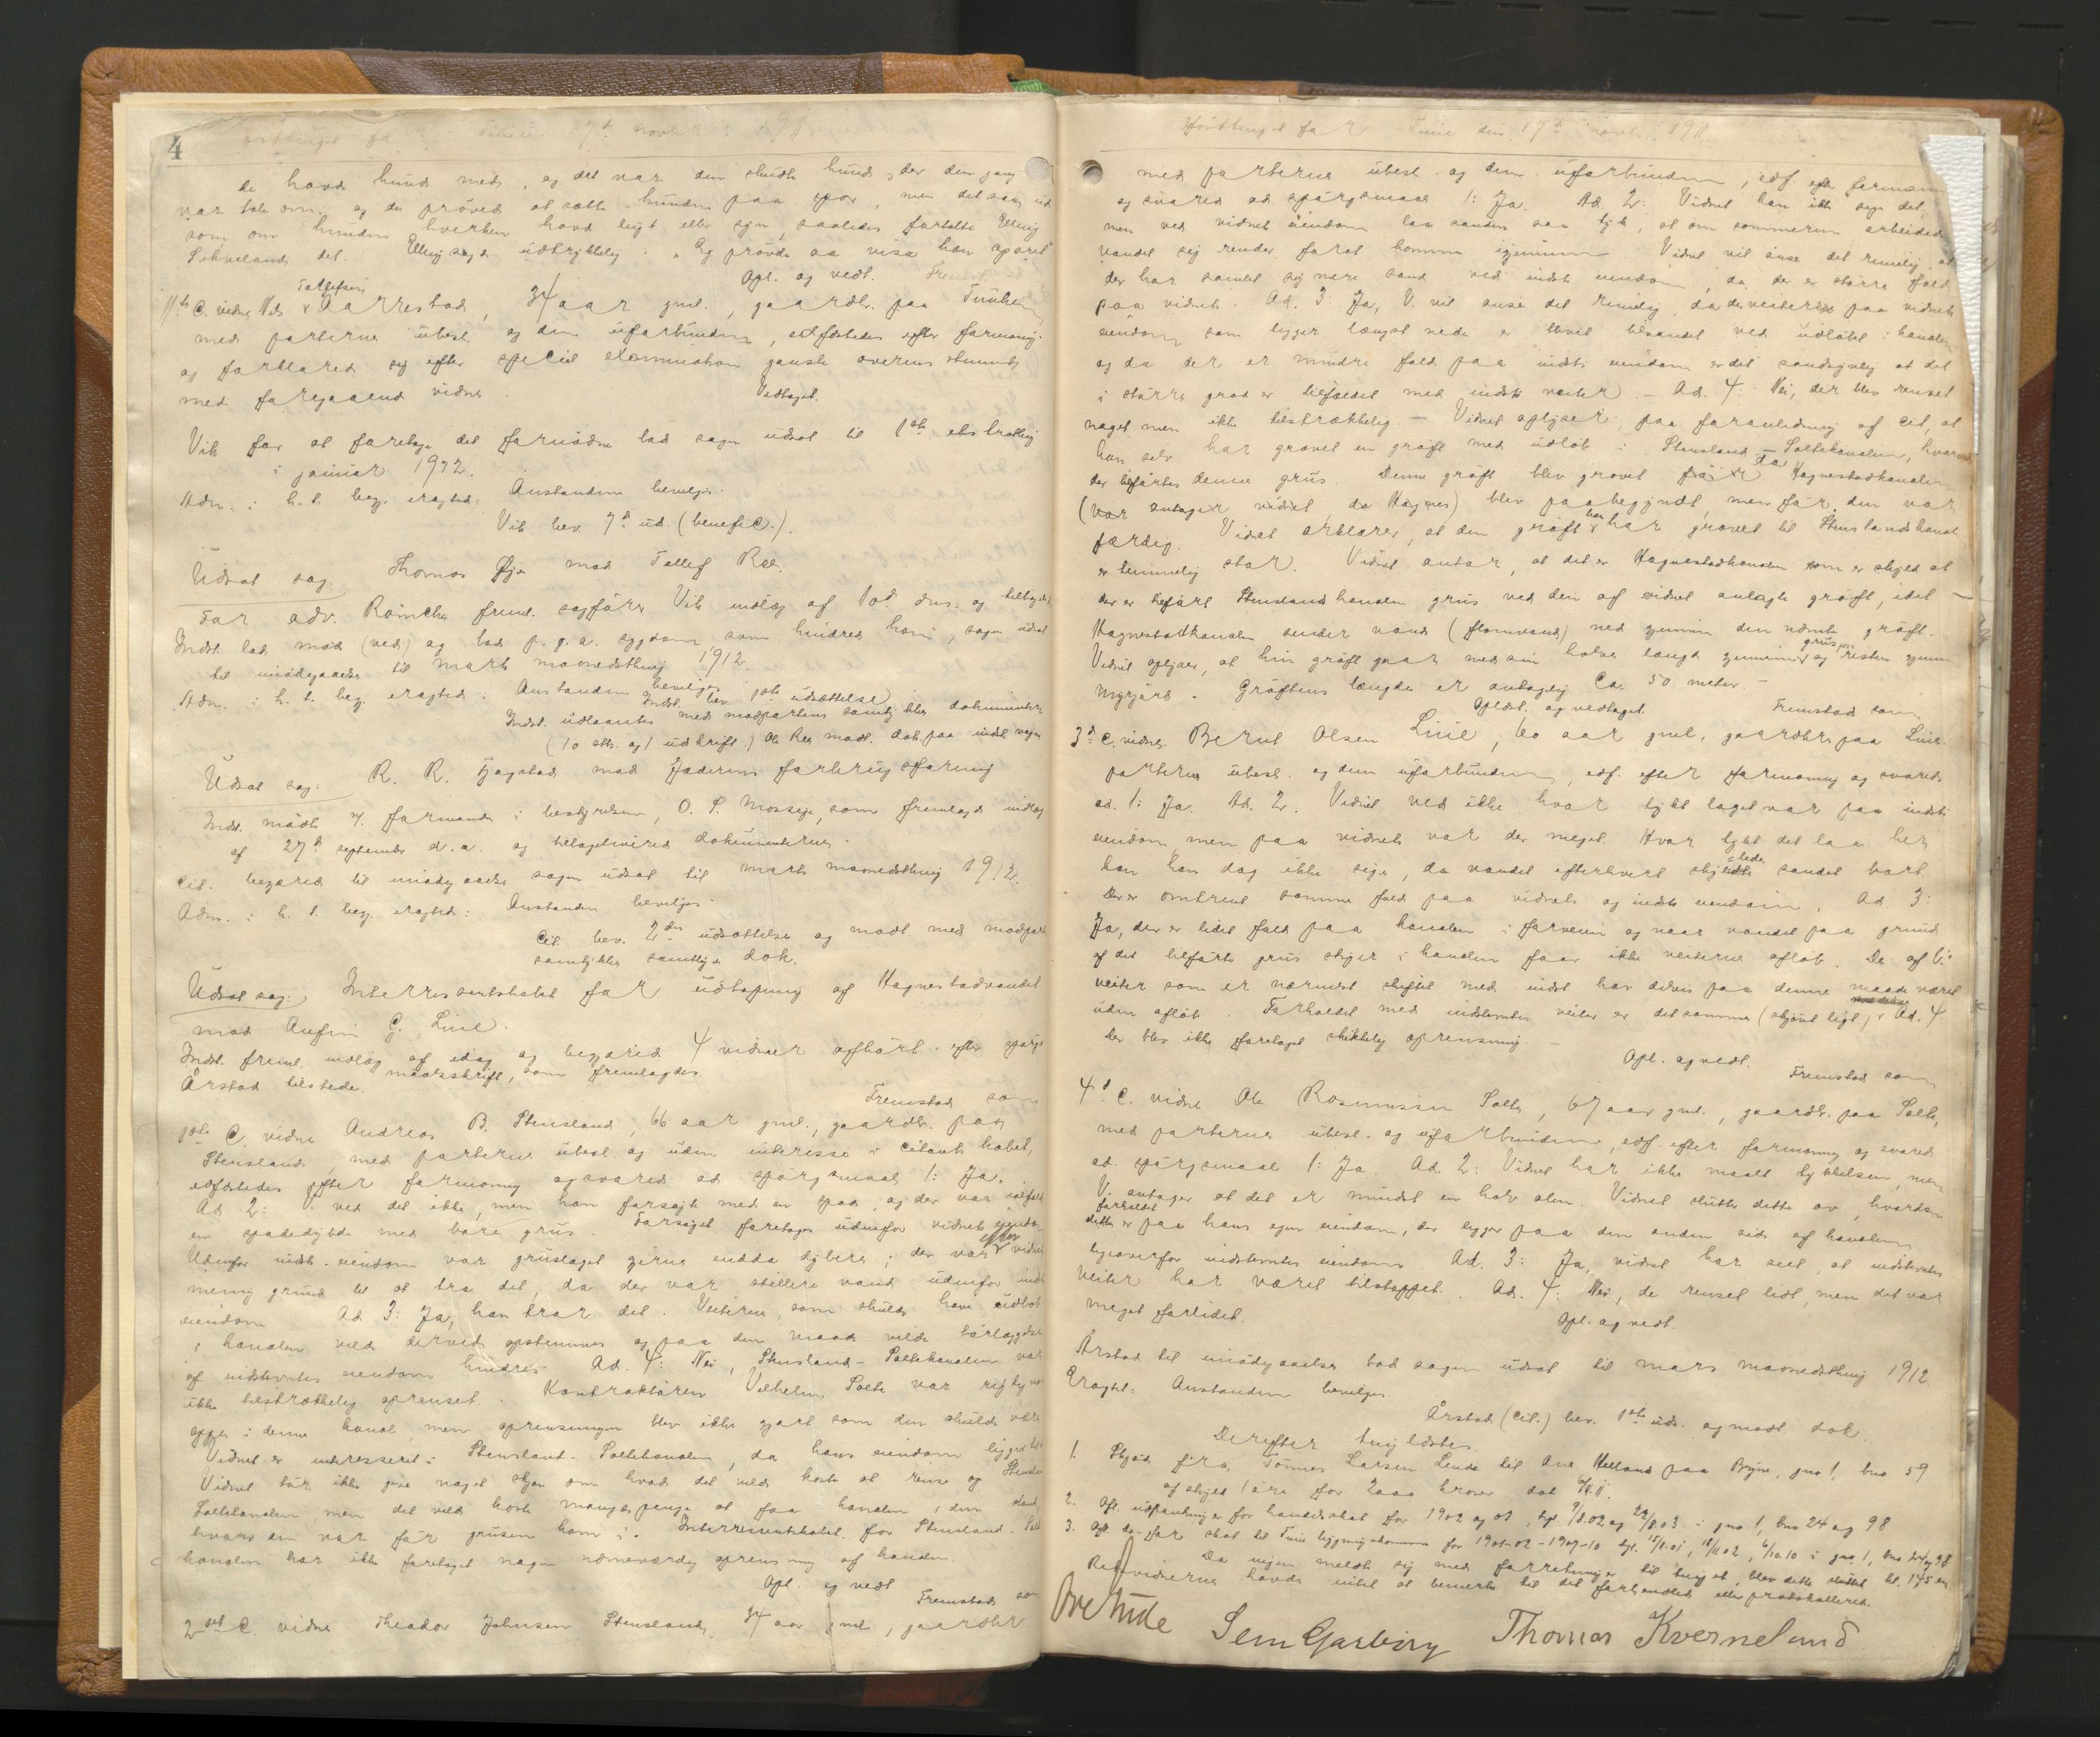 4
Time 17de novbr. 1911
de havde hund med, og det var den skudte hund, der den gang
var tale om. og de prøvede at sætte hunden paa spor, men det saa ud
som om hunden hverken havde lugt eller syn, saaledes fortalte Elling
Tekseland det. Elling sagde udtrykkelig: "Eg prøvde aa visa han sporet"
Opl. og vedt.
11te C. vidne Nils Tollefsen Aarrestad, 34 aar gml., gaardbr. paa Tunheim
med parterne ubesl. og dem uforbunden, edfæstedes efter formaning
og forklarede sig efter speciel examination ganske overensstemmende
med foregaaende vidne. Vedtaget.
Vik for at foretage det fornødne bad sagen udsat til 1ste extrating
i januar 1912.
Adm. i h. t. beg. eragtede: Anstanden bevilges.
Vik bev. 7de ud. (benefic.).
Udsat sag: Thomas Øye mod Tollef Ree.
For adv. Røincke freml. sagfører Vik indlæg af 10de dns. og bilag
Indst. lod møde (ved) og bad p. g. a. sygdom, som hindrede ham, sagen udsat
til imødegaaelse til marts maanedsthing 1912.
Adm. i h. t. beg. eragtede: Anstanden bevilges.
Indst. bev. 1ste udsættelse
Indst. udlaantes med modpartens samtykke dokumenterne
(10 stk. og 1 udskrift.) Ole Ree modt. dok. paa indst. vegne
Udsat sag: R. R. Hagestad mod Jæderens forbrugsforening
Indst. mødte v. formanden i bestyrelsen, O. S. Mossige, som fremlagde indlæg
af 27de september d. a. og tilbageleverede dokumenterne.
Cit. begjærede til imødegaaelse sagen udsat til marts maanedsthing 1912.
Adm. i h. t. beg. eragtede: Anstanden bevilges.
Cit. bev. 2den udsættelse og modt. med modpart.
samtykke samtlige dok.
Udsat sag: Interessentskabet for udtapning af Hagnestadvandet
mod Anfin G. Line.
Indst. freml. indlæg af idag og begjærede 4 vidner afhørt efter spørgs-
maalsskrift, som fremlagdes.
Årstad tilstede.
Fremstod som
1ste C. vidne Andreas B. Stensland, 66 aar gml., gaardbr. paa
Stensland, med parterne ubesl. og uden interesse i citantskabet,
edfæstedes efter formaning og svarede ad spørgsmaal 1: Ja.
Ad 2: V. ved det ikke, men han forsøgte med en spade, og der var ialfald
en spadedybde med bare grus. Forsøget foretoges udenfor vidnets eiendom
Udenfor indst. eiendom var gruslaget gjerne endda dybere; der var efter vidnets
mening grund til at tro det, da der var stillere vand udenfor indst.
eiendom. Ad 3: Ja, han tror det. Veiterne, som skulde have udløb
i kanalen vilde derved opstemmes og paa den maade vilde tørlægges
af indstevntes eiendom hindres. Ad. 4: Nei, Stensland-Saltekanalen var
ikke tilstrækkelig oprenset. Kontraktøren Vilhelm Salte var rigtignok
oppe i denne kanal, men oprensningen blev ikke gjort som den skulde være
Vidnet er interesseret i Stensland-Saltekanalen, da hans eiendom ligger til
Vidnet tør ikke give noget skjøn om hvad det vilde koste at rense op Stensland
Saltekanalen, men det vilde koste mange penge at faa kanalen i den stand,
hvori den var før grusen kom i. Interessentskabet for Stensland-Salte
kanalen har ikke foretaget nogen nævneværdig oprensning af kanalen.
Opl. og vedt.
Fremstod som
2det C. vidne Theodor Johnsen Stensland, 34 aar gml, gaardbr
Høsttinget for Time den 17de novbr. 1911
med parterne ubesl. og dem uforbunden, edf. efter formaning
og svarede ad spørgsmaal 1: Ja. Ad. 2: Vidnet kan ikke sige det,
men ved vidnets eiendom laa sanden saa tyk, at om sommeren arbeidede
vandet sig render forat komme igjennem. Vidnet vil anse det rimelig at
der har samlet sig mere sand ved indst. eiendom, da der er større fald
paa vidnets. Ad. 3: Ja, V. vil anse det rimelig, da der veiterne paa vidnets
eiendom som ligger længst nede er blevet tilsandet ved udløbet i kanalen
og da der er mindre fald paa indst. eiendom er det sandsynlig at det
i større grad er tilfældet med indst. veiter. – Ad. 4: Nei, der blev renset
noget men ikke tilstrækkelig. – Vidnet oplyser paa foranledning af cit, at
han selv har gravet en grøft med udløb i Stensland-Saltekanalen, hvorved
der tilførtes denne grus. Denne grøft blev gravet da Hagnestadkanalen
(var antager vidnet, da Hagnes) blev paabegyndt, men før den var
færdig. Vidnet erklærer, at den grøft han har gravet til Stenslandskanal
er temmelig stor. Vidnet antar, at det er Hagnestadkanalen som er skyld at
der er tilført Stenslandkanalen grus ved den af vidnet anlagte grøft, idet –
Hagnestadkanalen sender vand (flomvand) ned gjennem den nævnte grøft.
Vidnet oplyser, at hin grøft gaar med sin halve længde gjennem grus og resten gjennem
myrjord. Grøftens længde er antagelig ca. 50 meter. –
Oplæst. og vedtaget. Fremstod som
3de C. vidne. Bernt Olsen Line, 60 aar gml, gaardbr. paa Line.
parterne ubesl. og dem uforbunden, edf. efter formaning og svarede
ad. 1: Ja. Ad. 2. Vidnet ved ikke hvor tykt laget var paa indst.
eiendom, men paa vidnets var der meget. Hvor tykt det laa her
kan han dog ikke sige, da vandet efterhvert skyllede sandet bort.
Der er omtrent samme fald paa vidnets og indst. eiendom. Ad. 3:
Ja, der er lidet fald paa kanalen i forveien og naar vandet paa grund
af det tilførte grus stiger i kanalen faar ikke veiterne afløb. De af V.s
veiter som er nærmest skiftet med indst. har derved paa denne maade været
uden afløb. Forholdet med indstevntes veiter er det samme (skjønt ligt). Ad. 4
Der blev ikke foretaget skikkelig oprensning. –
Opl. og vedt.
Fremstod som
4de C. vidne Ole Rasmussen Salte, 67 aar gml., gaardbr. paa Salte,
med parterne ubesl. og uforbunden, edf. efter formaning og svarede
ad. spørgsmaal 1: Ja. Ad. 2: Vidnet har ikke maalt tykkelsen, men
V. antager at det er mindst en halv alen. Vidnet slutter dette av, hvordan
forholdet
dette er paa hans egen eiendom, der ligger paa den anden side af kanalen
ligeoverfor indstevntes eiendom. Ad. 3: Ja, vidnet har seet, at indstevntes
veiter har været tilstoppet. Ad. 4: Nei, de renset lidt, men det var
meget forlidet. Opl. og vedt.
Årstad til imødegaaelse bad sagen udsat til mars maanedsthing 1912.
Eragtet: Anstanden bevilges.
Årstad (cit.) bev. 1ste uds. og modt. dok.
Derefter tinglæstes.
1. Skjøde fra Tønnes Larsen Lende til Ane Helland paa Bryne, gno 1, bno 59
af skyld 1 øre for 2000 kroner dat 6/11.11.
2. Afl. udpantninger for handelsskat for 1902 og 03, tgl. 9/8.02 og 22/8.03 i gno 1, bno 24 og 98
3. Afl. do. for skat til Time bygningskommune for 1901-02-1909-10 tgl. i gno 1, bno 24 og 98
Da ingen meldte sig med forretninger til tinget, blev dette sluttet kl. 1,45 em.
Retsvidnerne havde intet at bemerke til det forhandlede eller protokollerede.
Sem Garborg Thomas Kverneland